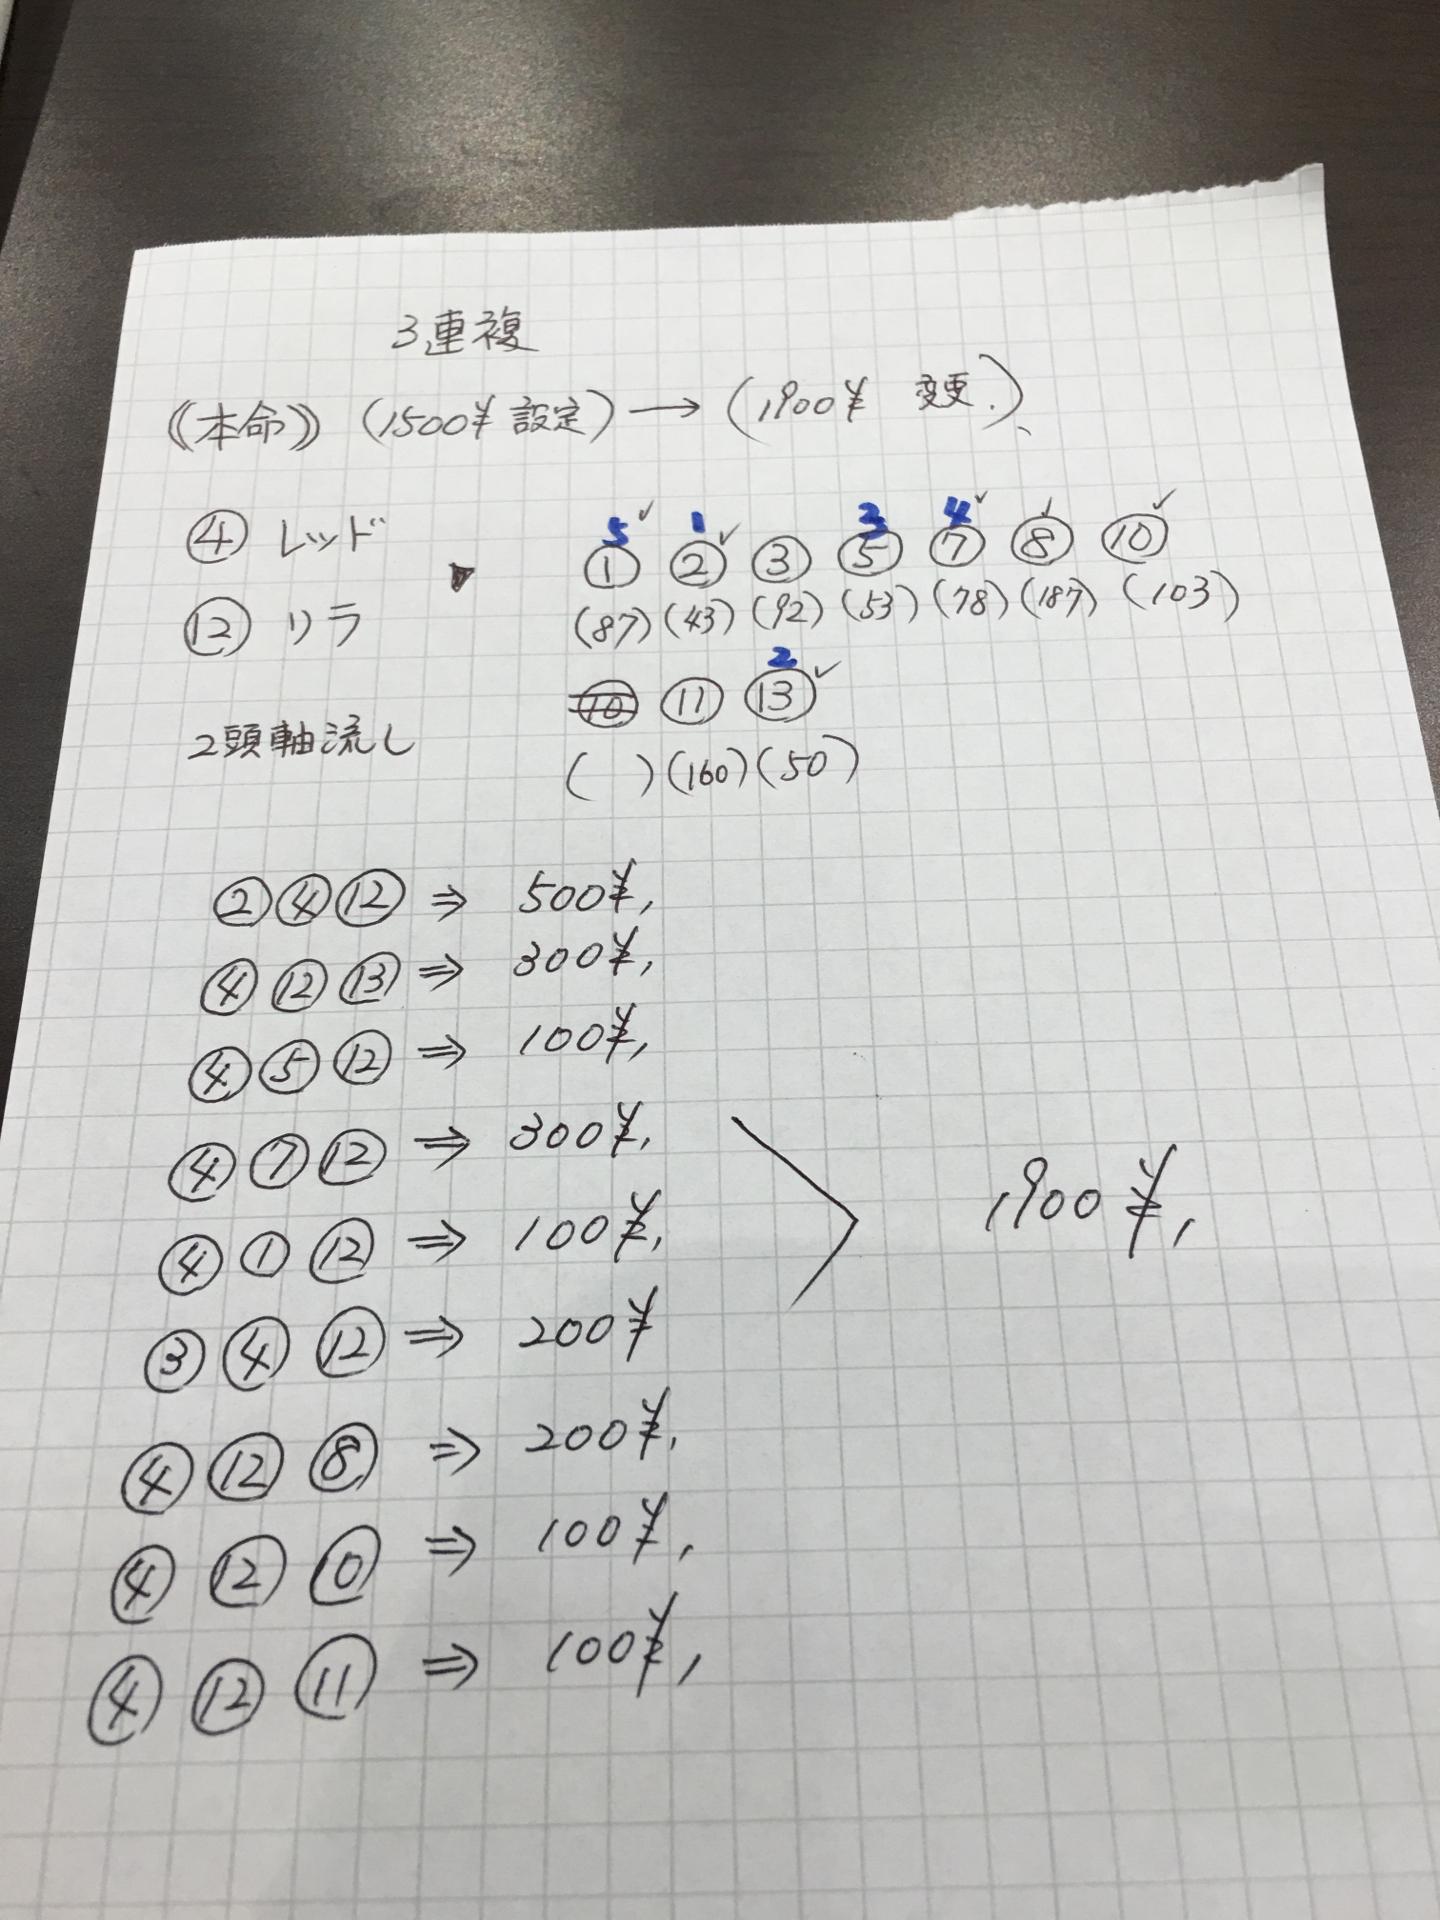 3連複
《本命》 (1500¥ 設定) → (1,900¥ 変更.)、
④ レッド
⑫ リラ
2頭軸流し
5✓ 1 3 4✓ ✓ ✓
① ②✓ ③ ⑤ ⑦ ⑧ ⑩
(87) (43) (92) (53) (78) (187) (103)
2
⑩ ⑪ ⑬✓
( ) (160) (50)
② ④ ⑫ ⇒ 500¥,
④ ⑫ ⑬ ⇒ 300¥,
④ ⑤ ⑫ ⇒ 100¥,
④ ⑦ ⑫ ⇒ 300¥,
④ ① ⑫ ⇒ 100¥,
③ ④ ⑫ ⇒ 200¥
④ ⑫ ⑧ ⇒ 200¥,
④ ⑫ ⑩ ⇒ 100¥,
④ ⑫ ⑪ ⇒ 100¥,
1,900¥,